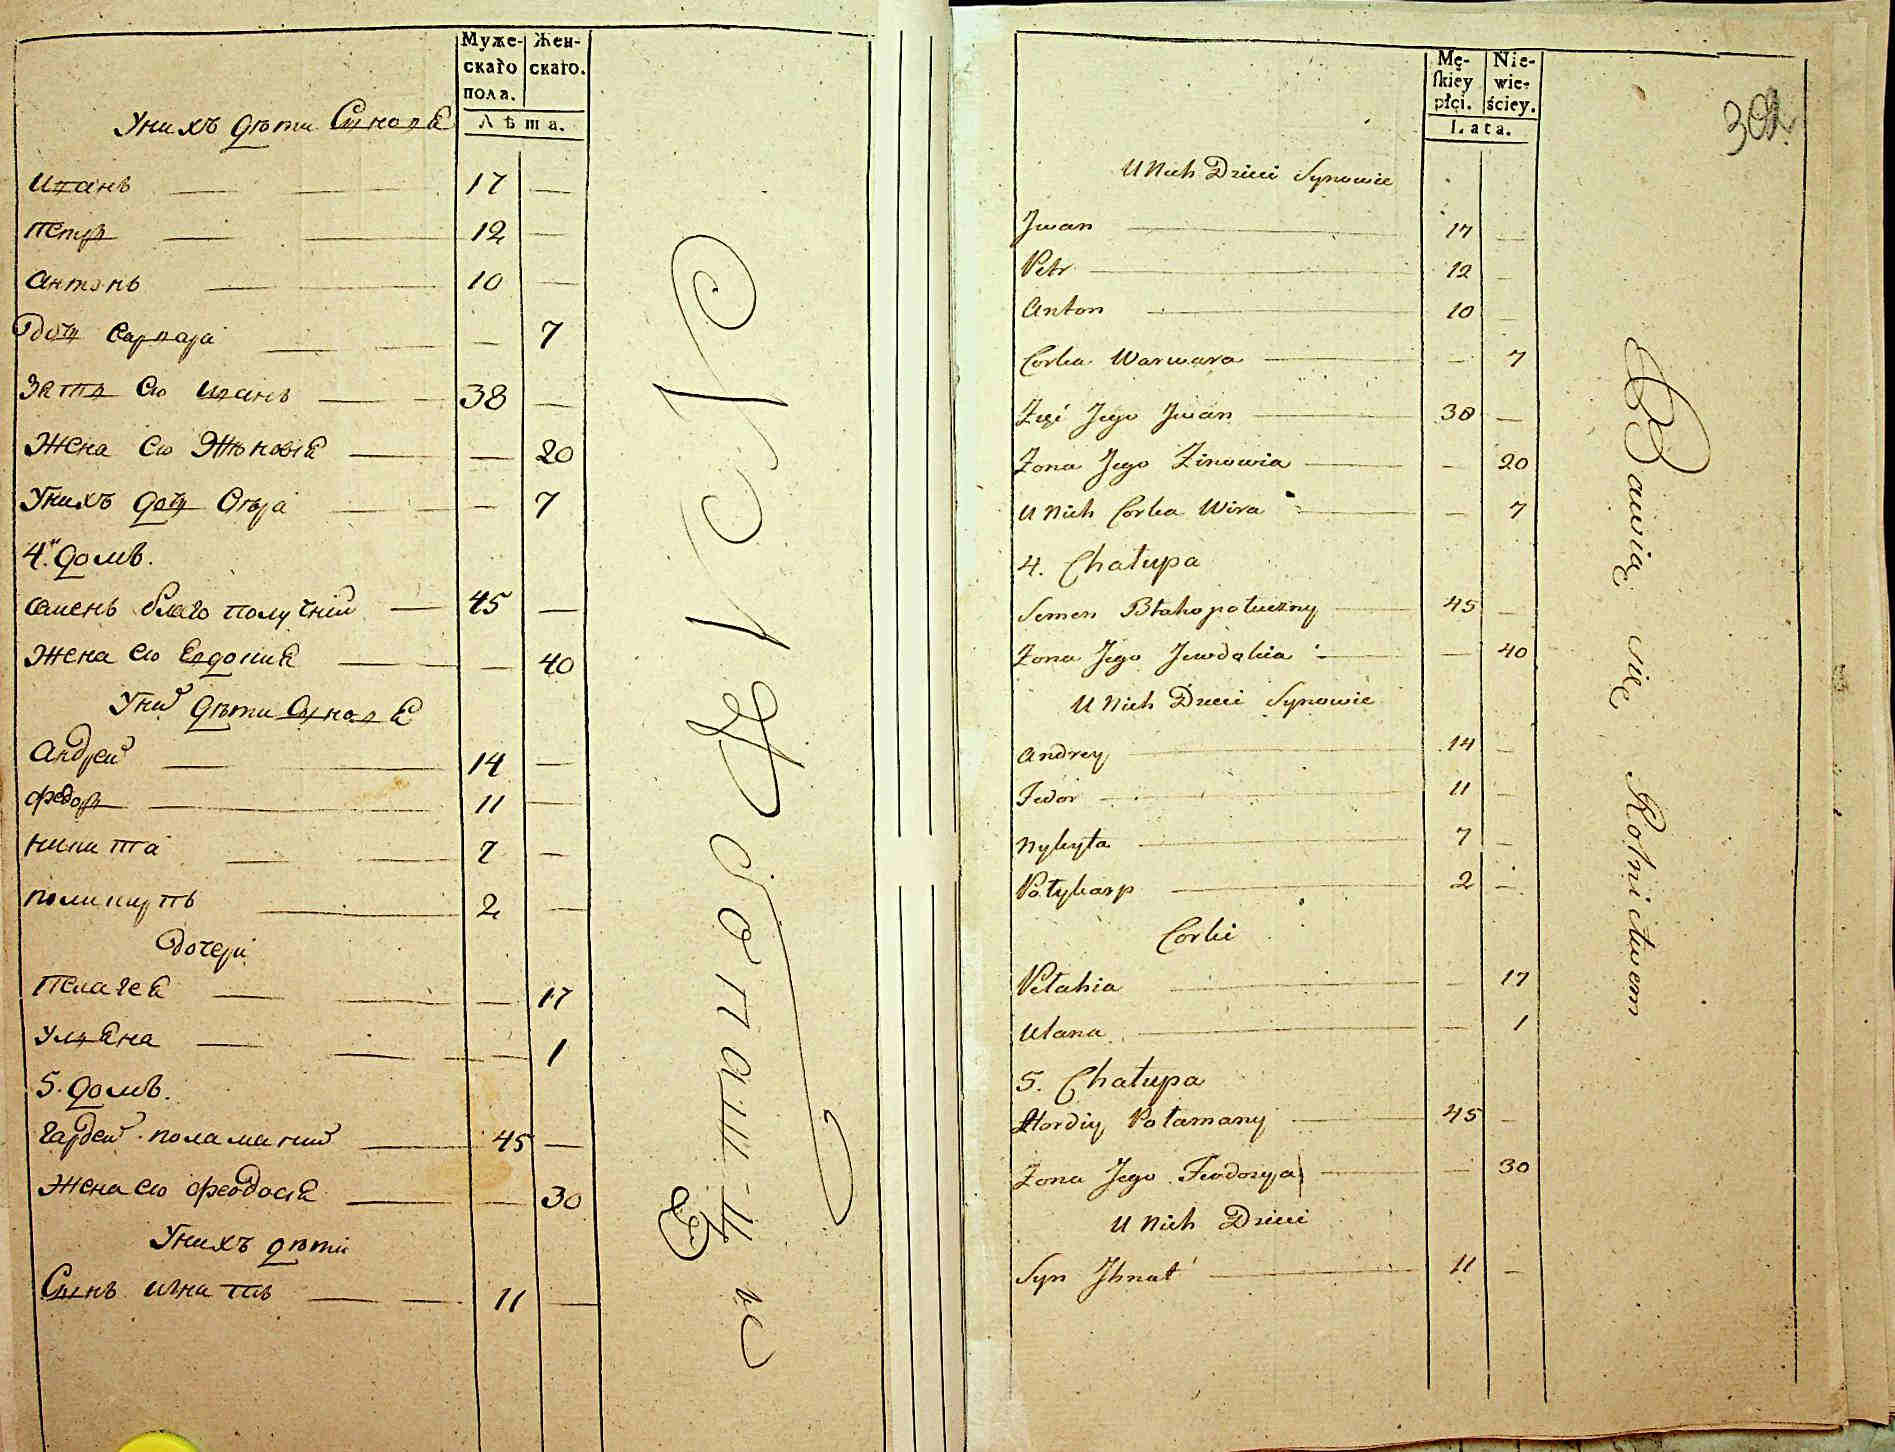 Муже- Жен-
скаго скаго.
пола.
Лѣта.
Унихъ дѣти Синовѣ
Иванъ 17 —
Петръ 12 —
Антонъ 10 —
дочь Варвара — 7
Зять Его Иванъ 38 —
Жена Его Зѣновія — 20
Унихъ дочь Вѣра — 7
4. домъ.
Семенъ благополучній 45 —
Жена Его Евдокия — 40
Уних дѣти Синовѣ
Андрей 14 —
Федоръ 11 —
Никита 7 —
Поликарпъ 2 —
Дочери
Пелагея — 17
Уляна — 1
5. домъ.
Гардей поламаний 45 —
Жена Его Феодосия — 30
Унихъ дѣти
Синъ Игнатъ 11 —
Mę- Nie-
ſkiey wie-
płçi. ściey.
Lata.
302
U Nich Dzieci Synowie
Jwan 17 —
Petr 12 —
Anton 10 —
Corka Warwara — 7
Zięć Jego Jwan 38 —
Zona Jego Zinowia — 20
U Nich Corka Wira — 7
4. Chałupa
Semen Błahopołuczny 45 —
Zona Jego Jewdokia — 40
U Nich Dzieci Synowie
Andrey 14 —
Fedor 11 —
Nykyta 7 —
Połykarp 2 —
Corki
Pełahia — 17
Ulana — 1
5. Chałupa
Hordiy Połamany 45 —
Zona Jego Feodozya — 30
U Nich Dzieci
Syn Jhnat 11 —
Bawią się Rolnictwem